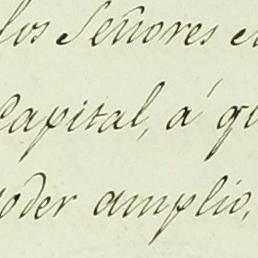 los Señores e
Capital, á qu
oder amplio,